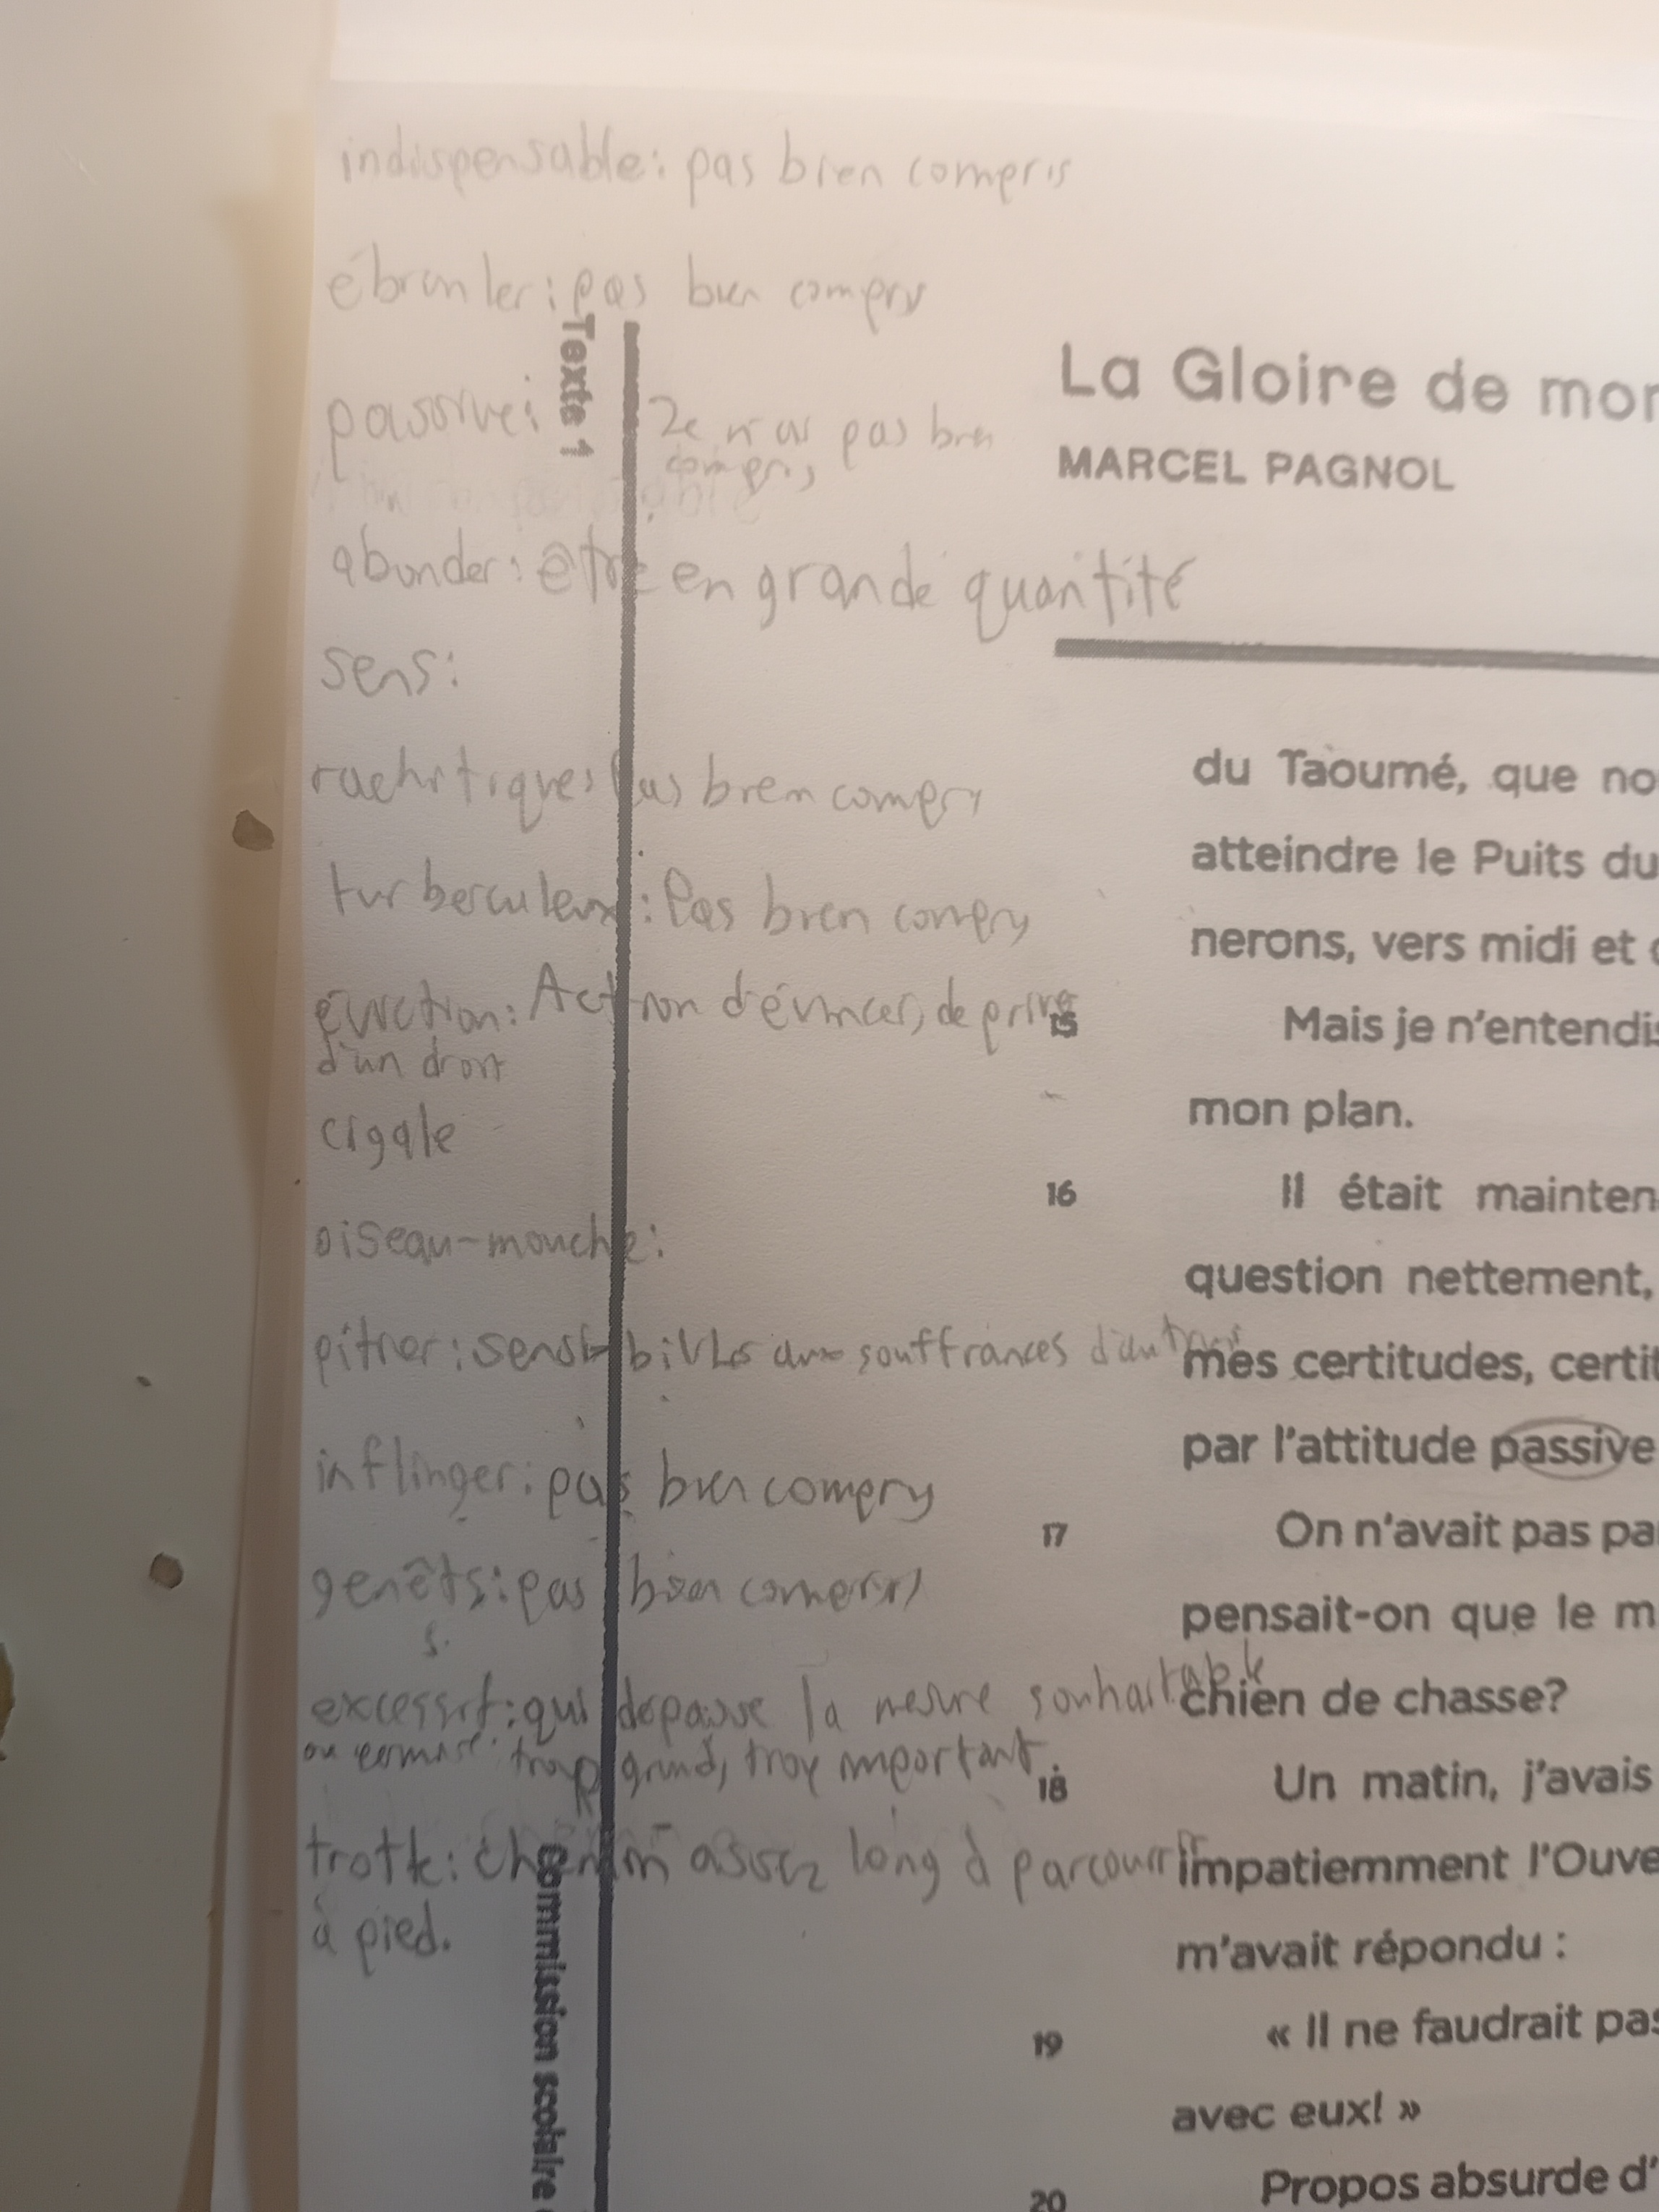 indispensable: pas bien compris
ébranler: pas bien compris
Texte 1
passive: Je n'ai pas bien
compris
La Gloire de mon
MARCEL PAGNOL
abonder: être en grande quantité
sens:
rachitiques pas bien compris
turberculeux: Pas bien compris
éviction: Action d'évincer, de priver
d'un droit
cigale
oiseau-mouche:
pitier: sensibilité aux souffrances d'autrui
inflinger: pas bien compris
genêts: pas bien compris
excessif: qui dépasse la mesure souhaitable
ou permise: trop grand, trop important.
trotte: chemin assez long à parcourir
à pied.
Commission scolaire
du Taoumé, que no
atteindre le Puits du
nerons, vers midi et
15 Mais je n'entendis
mon plan.
16 Il était mainten
question nettement,
mes certitudes, certit
par l'attitude passive
17 On n'avait pas pa
pensait-on que le m
chien de chasse?
18 Un matin, j'avais
impatiemment l'Ouve
m'avait répondu :
19 « Il ne faudrait pas
avec eux! »
20 Propos absurde d'